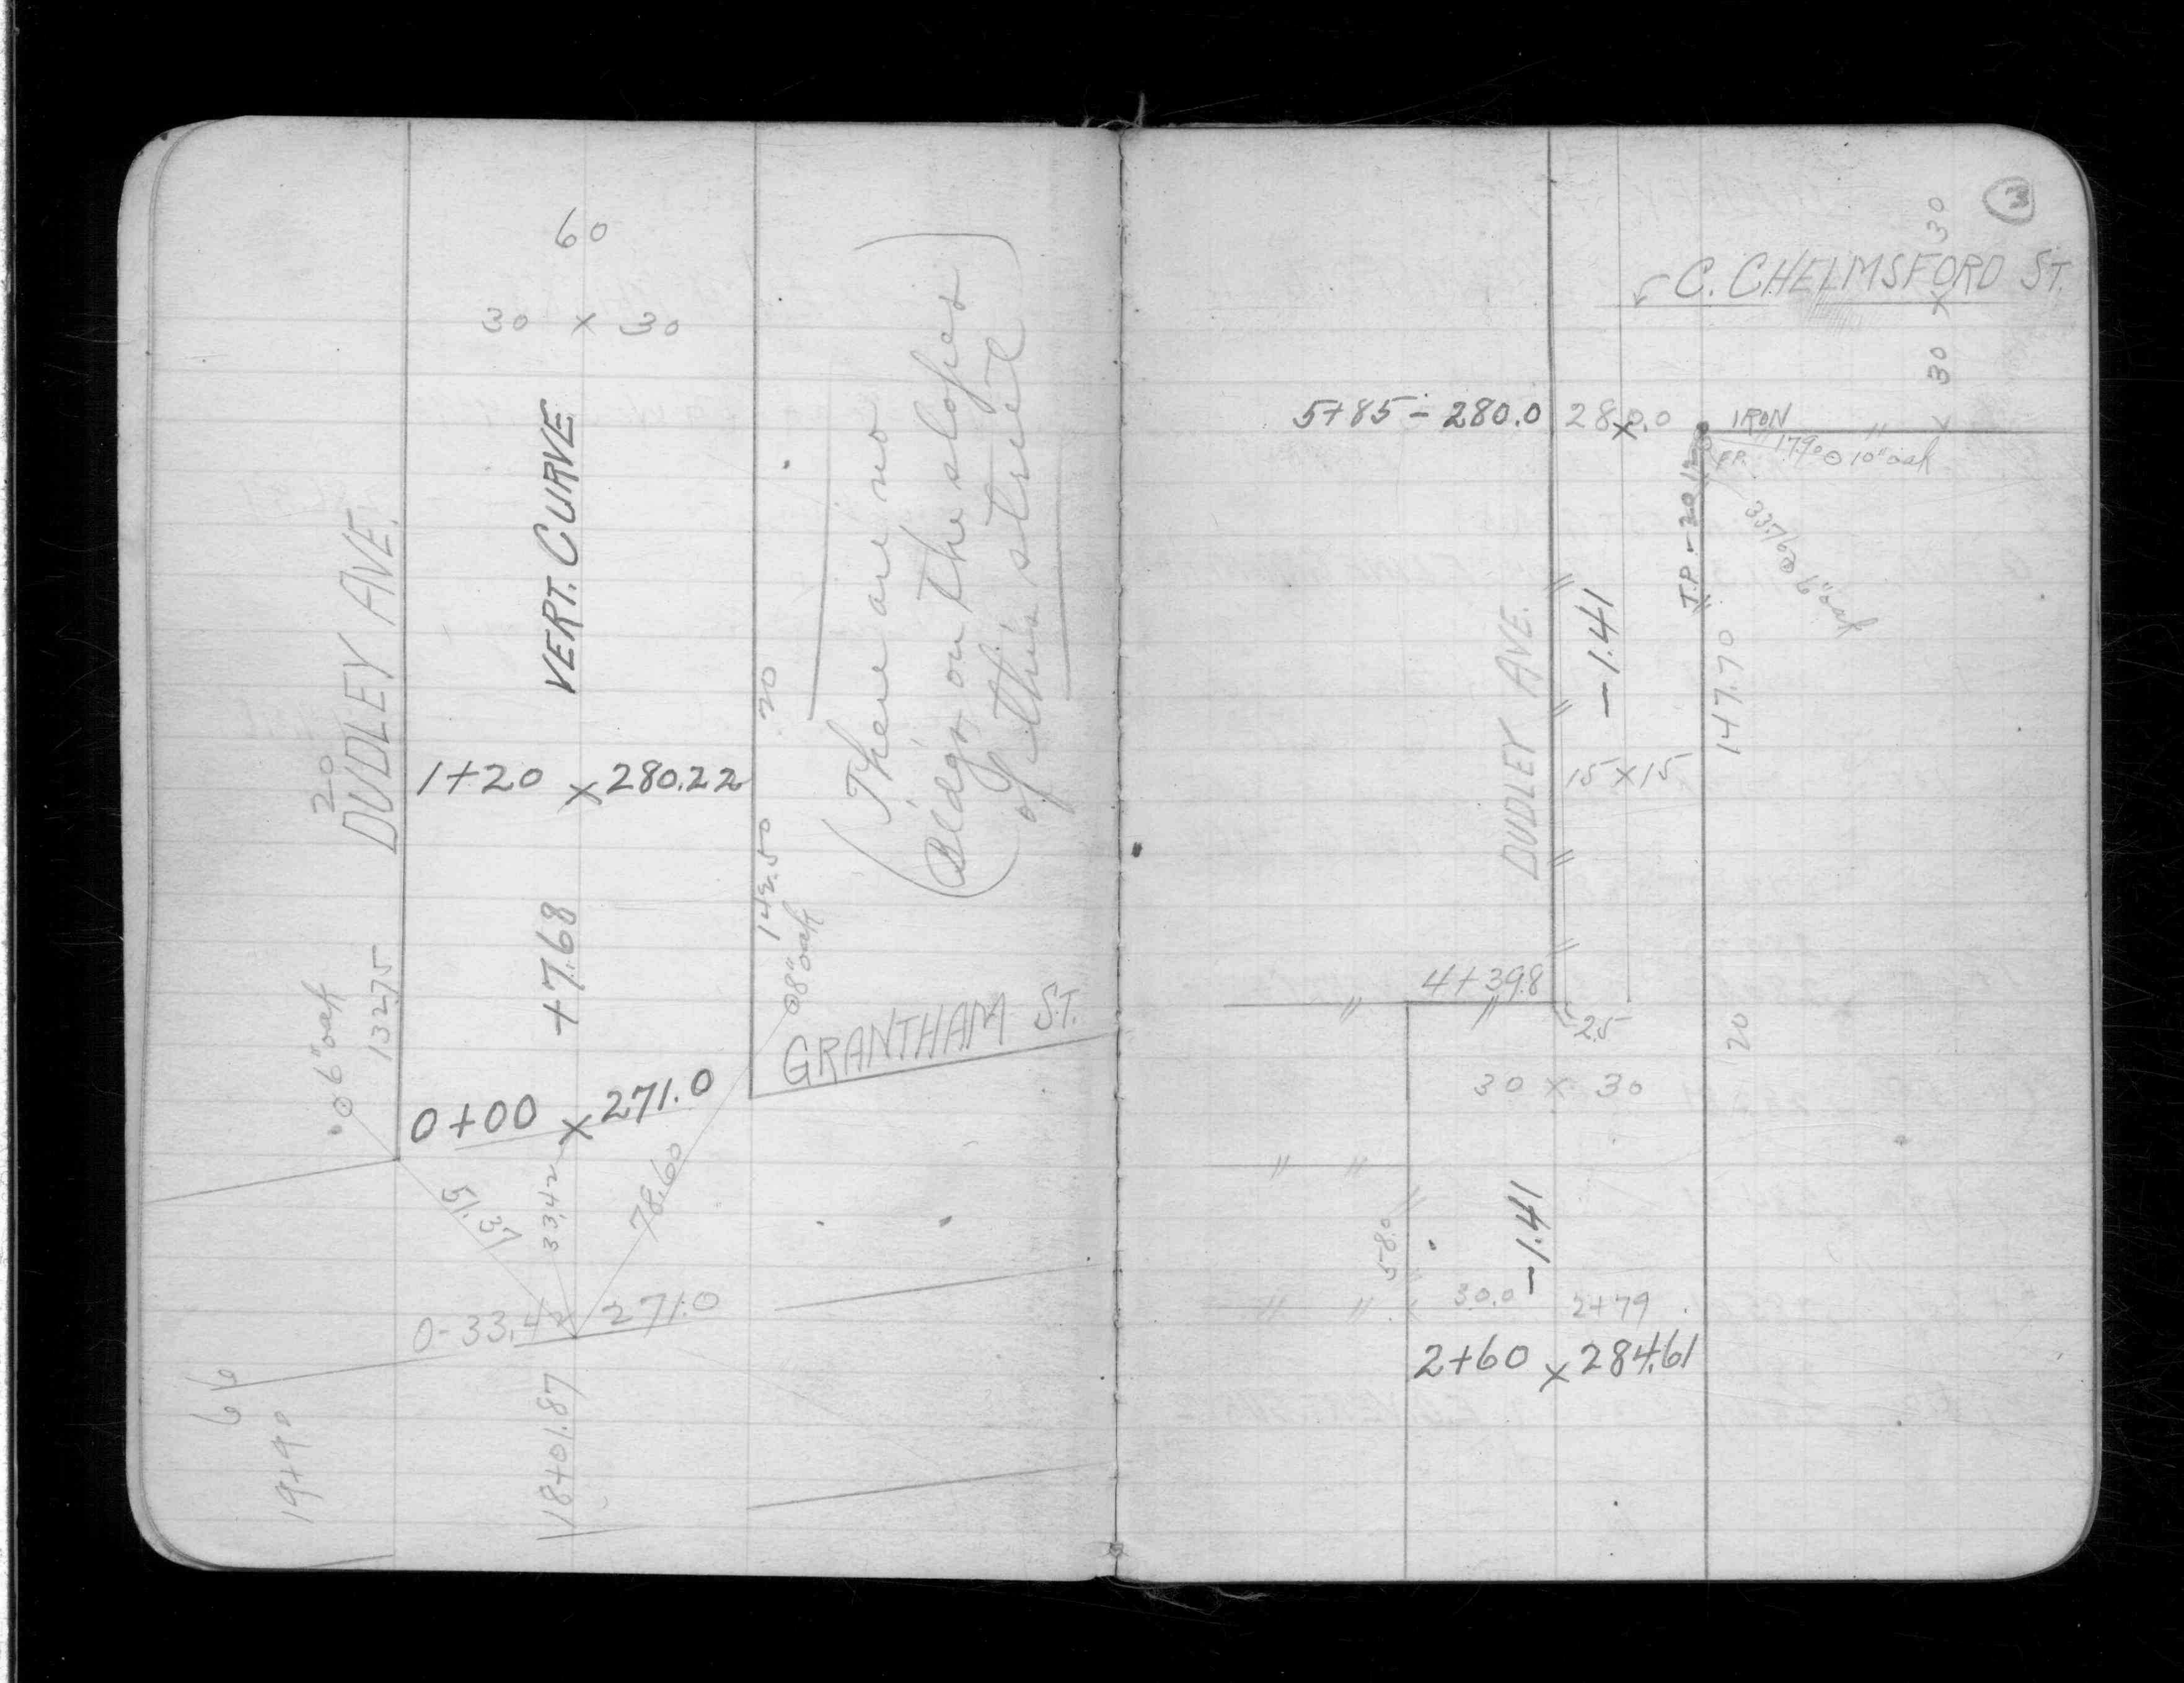 60
30 x 30
VERT. CURVE
20
DUDLEY AVE.
1+20 x 280.22
20
142.50
(There are no
Bldgs on the slopes
of this street)
+7.68
6" oak
132.75
8" oak
GRANTHAM ST.
0+00 x 271.0
51.37
33.42
78.60
0-33.42 271.0
66
19+90
18+01.87
3
30 x 30
C. CHELMSFORD ST.
5+85 - 280.0 280.0
IRON
17.90 10" oak
33.7
6" oak
147.70
-1.41
DUDLEY AVE.
15 x 15
4+39.8
25
20
30 x 30
-1.41
58.0
30.0 2+79
2+60 x 284.61